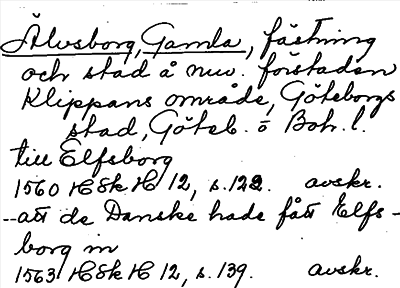 Älvsborg, Gamla, fästning
och stad å nuv. förstaden
Klippans område, Göteborgs
stad, Göteb. o Boh. l.
till Elfsborg
1560 HSkH 12, s. 122. avskr.
--att de Danske hade fått Elfs-
borg in
1563 HSkH 12, s. 139. avskr.